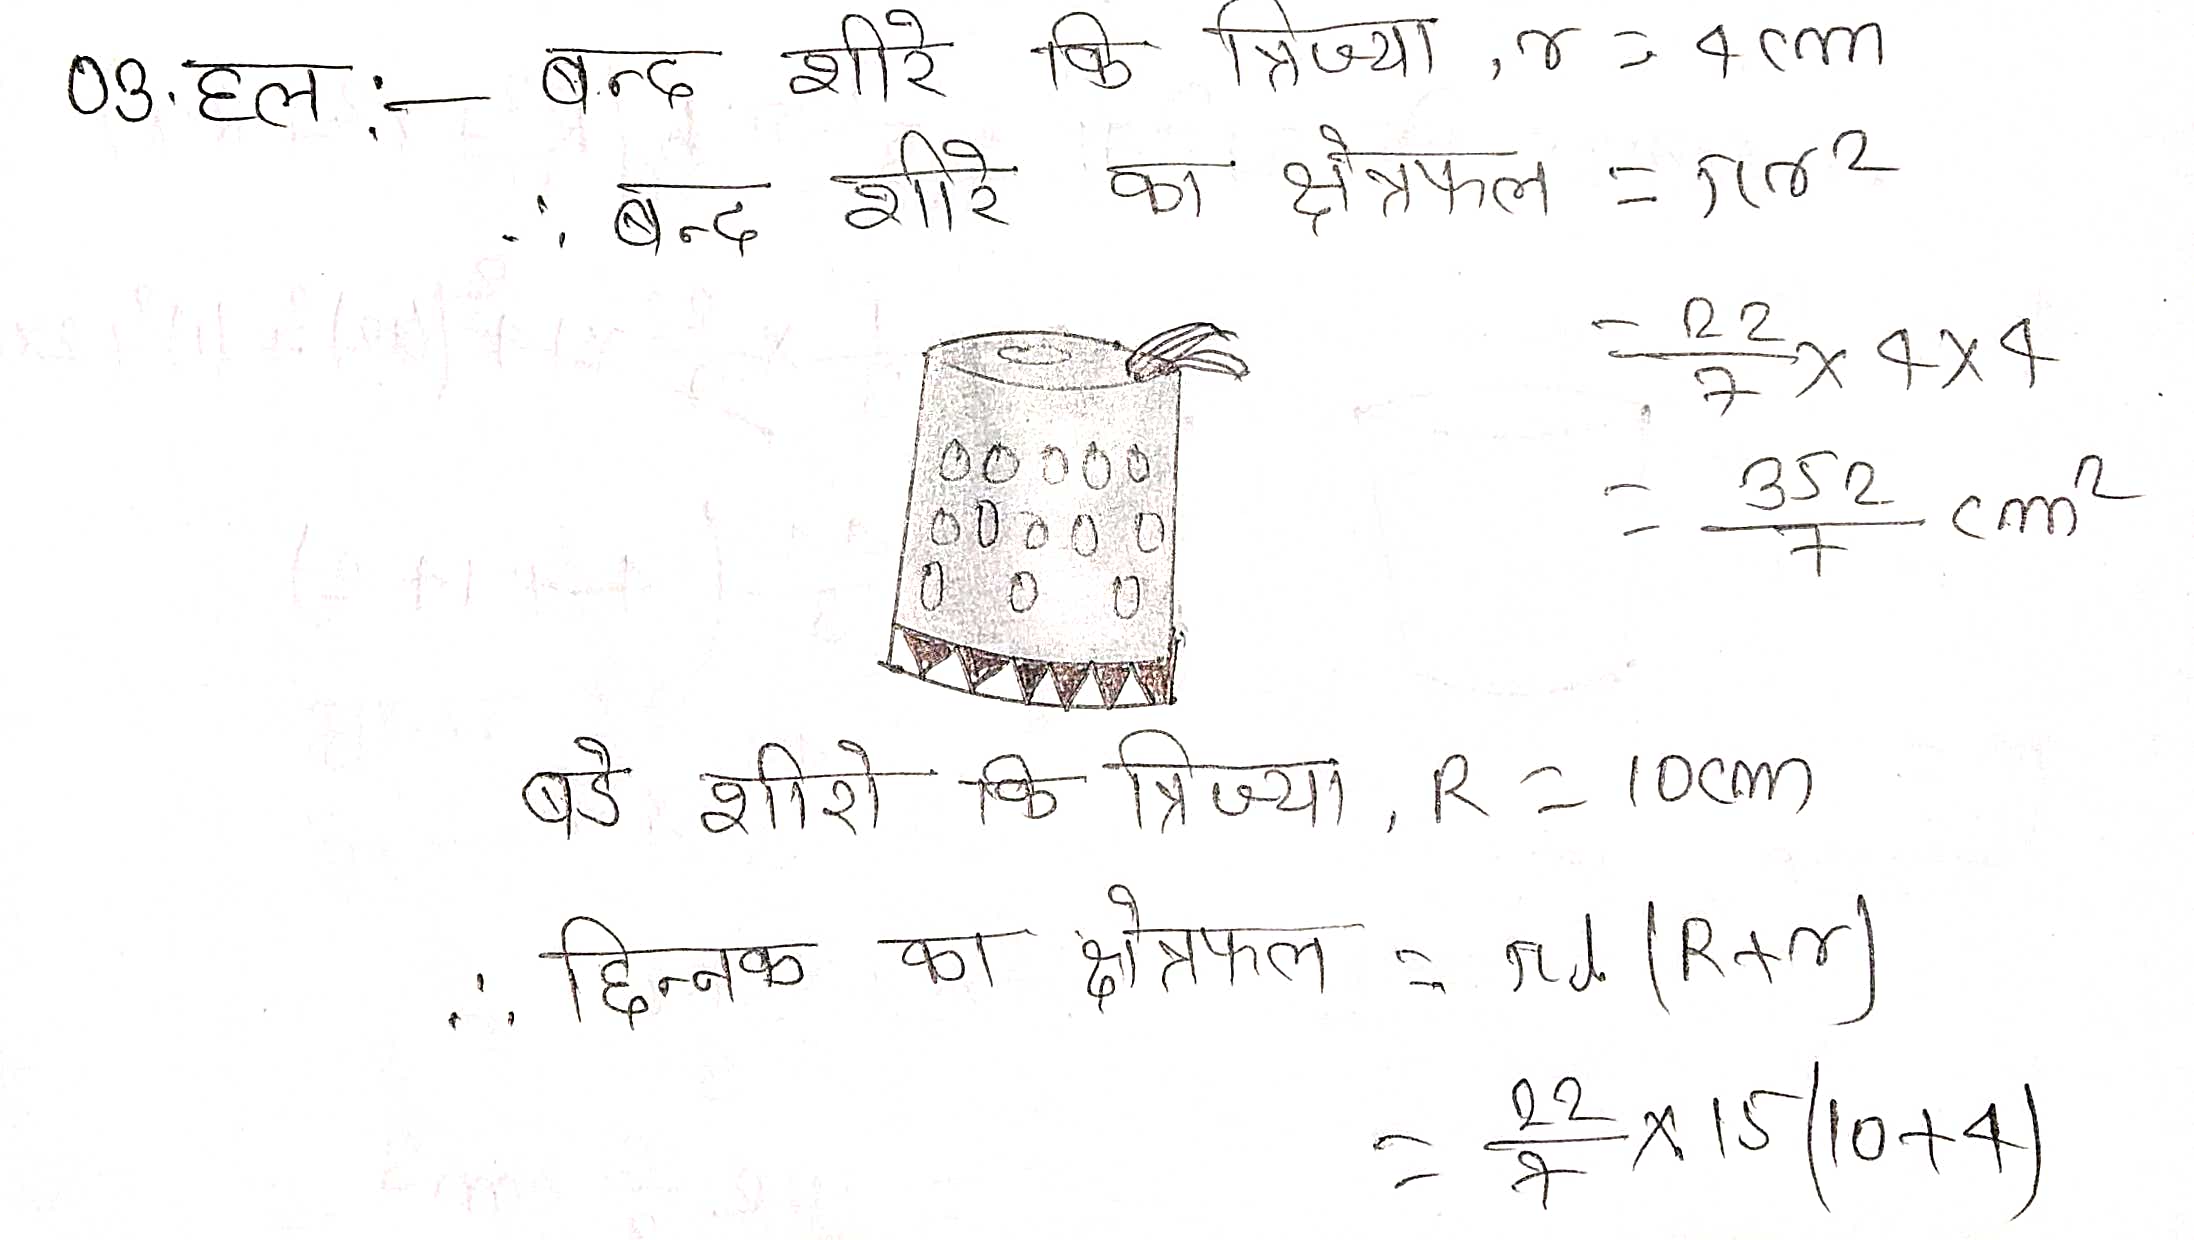 03. हल :— बन्द शीरे कि त्रिज्या , r = 4 cm
∴ बन्द शीरे का क्षेत्रफल = πr²
= 22/7 × 4 × 4
= 352/7 cm²
बडे शीरो कि त्रिज्या , R = 10cm
∴ छिन्नक का क्षेत्रफल = πl (R+r)
= 22/7 × 15 (10+4)